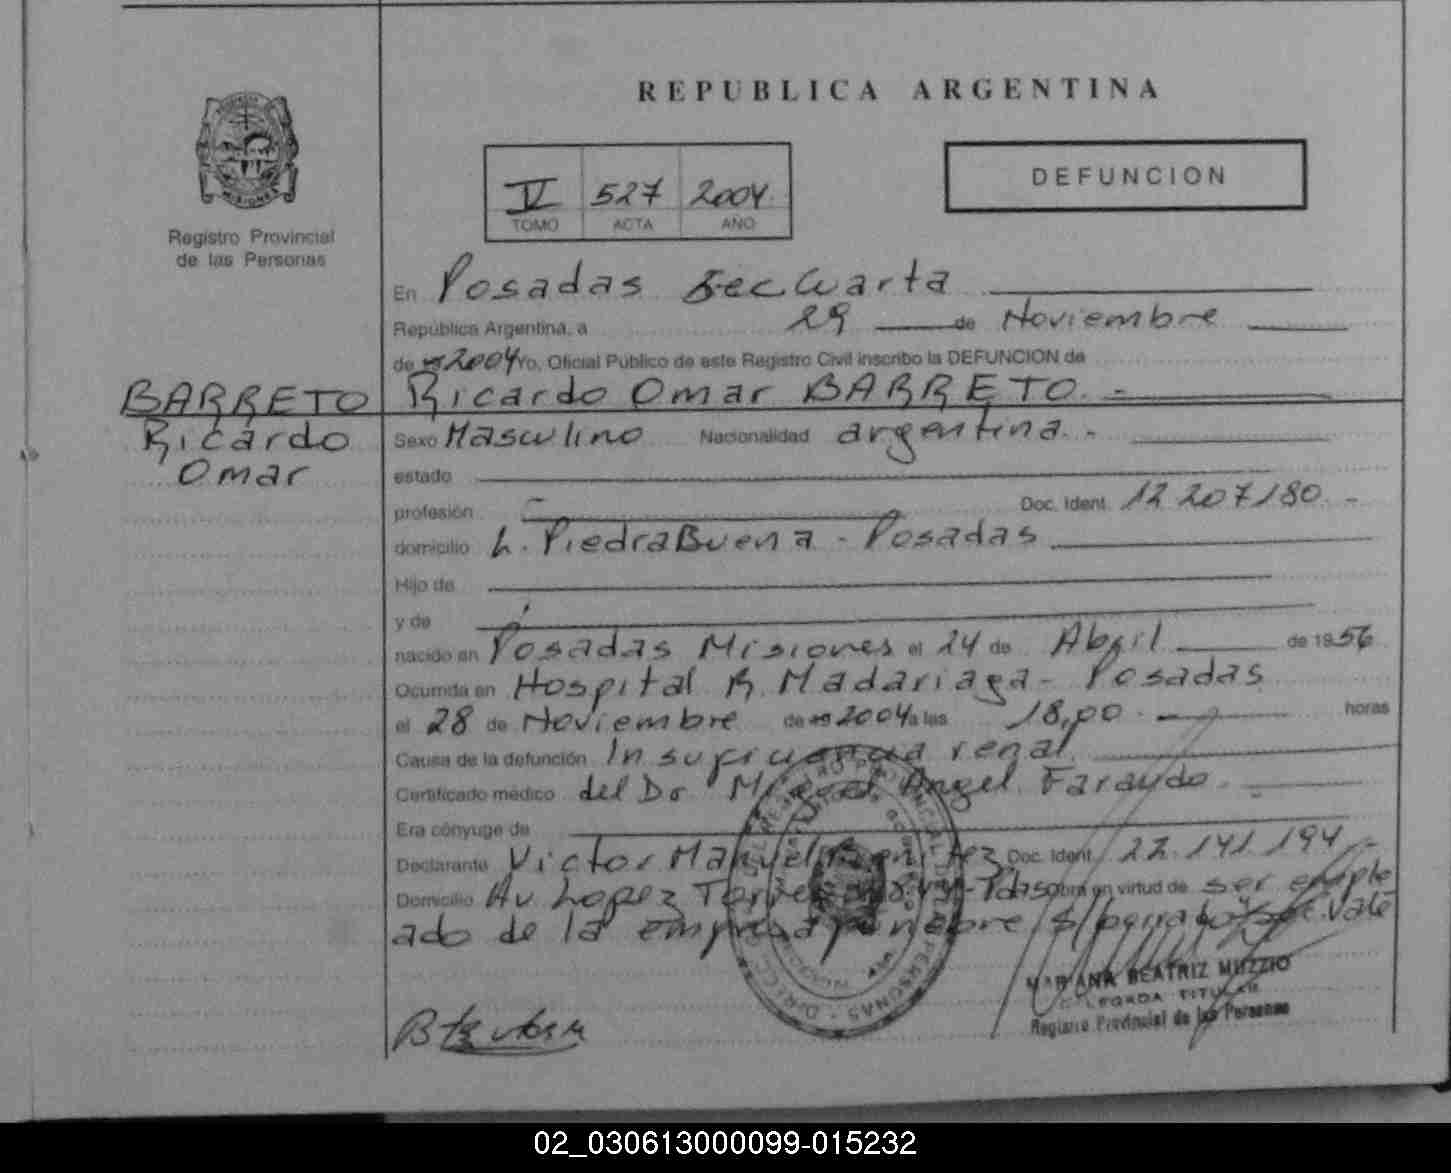 REPUBLICA ARGENTINA
DEFUNCION
V 527 2004
TOMO ACTA AÑO
MISIONES
Registro Provincial
de las Personas
En Posadas Sec Cuarta
República Argentina, a 29 de Noviembre
de 19 2004 Yo, Oficial Público de este Registro Civil inscribo la DEFUNCION de
BARRETO Ricardo Omar BARRETO. -
Ricardo Sexo Masculino Nacionalidad argentina. -
Omar estado
profesión Doc. Ident. 12 207 180. -
domicilio L. PiedraBuena - Posadas
Hijo de
y de
nacido en Posadas Misiones el 24 de Abril de 1956
Ocurrida en Hospital R. Madariaga - Posadas
el 28 de Noviembre de 19 2004 a las 18,00. - horas
Causa de la defunción Insuficiencia renal
Certificado médico del Dr Miguel Angel
Era cónyuge de
Declarante Victor Manuel Benitez Doc. Ident. 22.141.194
Domicilio Av. Lopez Torres - Pdas Obra en virtud de ser emple
ado de la empresa funebre S/ borrado
MARIANA BEATRIZ MUZZIO
DELEGADA TITULAR
Registro Provincial de las Personas
02_030613000099-015232